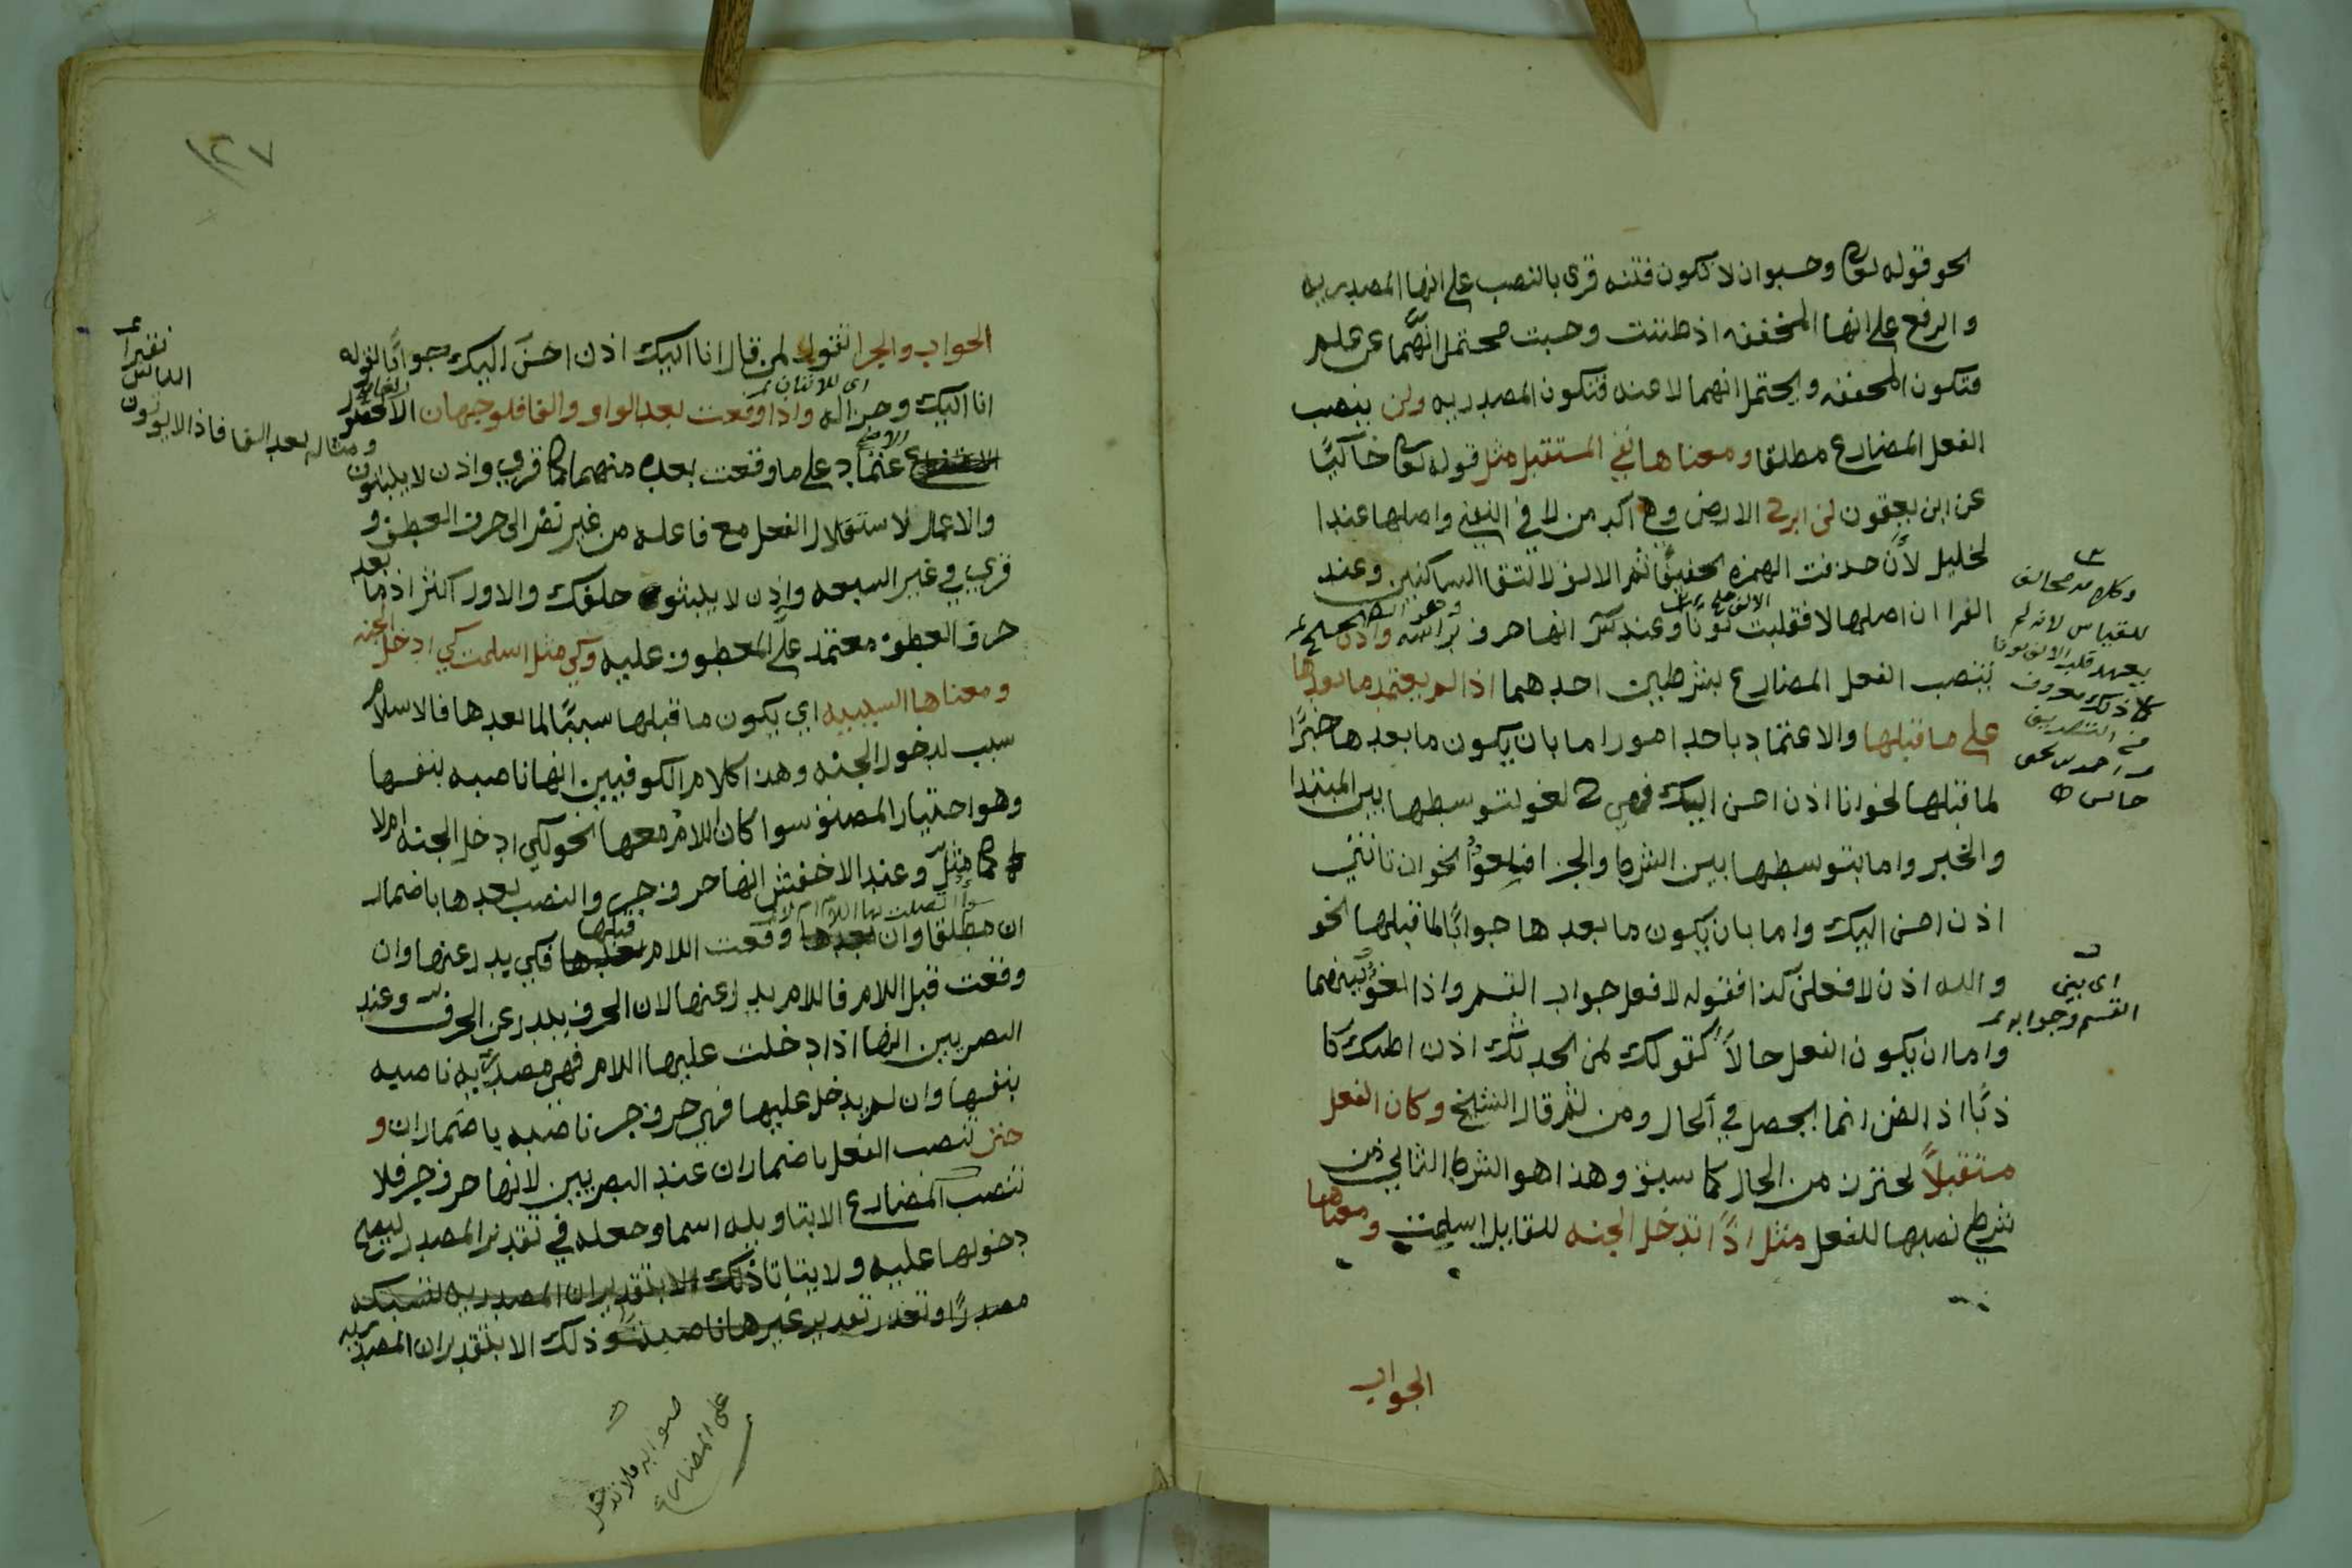 نحو قوله تعالى وحسبوا ان لا تكون فتنه قرى بالنصب على انها المصدريه
والرفع على انها المخففه اذ ظننت وحسبت محتمل انهما عن علم
فتكون المخففه ويحتمل انهما لا عنه فتكون المصدريه ولن ينصب
الفعل المضارع مطلقا ومعناها نفي المستقبل مثل قوله تعالى حاكيًا
عن ابن يعقوب لن ابرح الارض وهي آكد من لا في النفي واصلها عند ا
لخليل لا أن حذفت الهمزه تخفيفًا ثم الالف لالتقا الساكنين وعند
الفرا ان اصلها لا فقلبت الالف نونًا وعند انها حرف براسه وهو الصحيح واذن
تنصب الفعل المضارع بشرطين احدهما اذا لم يعتمد ما بعدها
على ما قبلها والاعتماد باحد امور اما بان يكون ما بعدها خبرًا
لما قبلها نحو انا اذن احسن اليك فهي لغو لتوسطها بين المبتدا
والخبر واما بتوسطها بين الشرط والجزا نحو ان تاتني
اذن احسن اليك واما بان يكون ما بعدها جوابًا لما قبلها نحو
والله اذن لافعلن كذا فقوله لافعل جواب القسم واذا لغو بينهما
واما ان يكون الفعل حالاً كقولك لمن يحدثك اذن اظنك كا
ذبًا اذ الظن انما يحصل في الحال ومن ثم قال الشيخ وكان الفعل
مستقبلاً تحترز من الحال كما سبق وهذا هو الشرط الثاني من
شرطي نصبها للفعل مثل اذًا تدخل الجنه للقايل اسلمت ومعناها
الجواب
وكلامه مخالف
للقياس لانه لم
يعهد قلب الالف نونا
كما ذلك معروف
في التصريف
اى بين
القسم وجوابه
١٢٧
الجواب والجزا تقول لمن قال انا اتيك اذن احسن اليك جوابًا لقوله
انا اتيك وجزا له واذا وقعت بعد الواو والفا فلوجهان
اعتماد على ما وقعت بعده منهما كما قرى واذن لا يلبثون
والاعمال لاستقلال الفعل مع فاعله من غير نظر الى حرف العطف و
قرى في غير السبعه واذن لا يلبثوا خلفك والاول اكثر اذ ما بعد
حرف العطف معتمد على المعطوف عليه وكي مثل اسلمت كي ادخل الجنه
ومعناها السببيه اي يكون ما قبلها سببًا لما بعدها فالاسلام
سبب لدخول الجنه وهذا كلام الكوفيين انها ناصبه بنفسها
وهو اختيار المصنف سوا كان اللام معها نحو لكي ادخل الجنه ام لا
كما مثل وعند الاخفش انها حرف جر والنصب بعدها باضمار
ان مطلقا سوا اتصلت بها اللام ام لا وان وقعت اللام قبلها فكي بدل عنها وان
وقعت قبل اللام فاللام بدل عنها لان الحرف يبدل عن الحرف وعند
البصريين انها اذا دخلت عليها اللام فهي مصدريه ناصبه
بنفسها وان لم يدخل عليها فهي حرف جر ناصبه باضمار ان و
حتى تنصب الفعل باضمار ان عند البصريين لانها حرف جر فلا
تنصب المضارع الا بتاويله اسما وجعله في تقدير المصدر ليصح
دخولها عليه ولا يتاتا ذلك الا بتقدير ان المصدريه لتسبكه
مصدرًا وتعذر تقدير غيرها ناصبه وذلك الا بتقدير ان المصدريه
نقيرا
ومثاله بعد الفا فاذا لا يوتون الناس
صوابه فلا تدخل
على المضارع